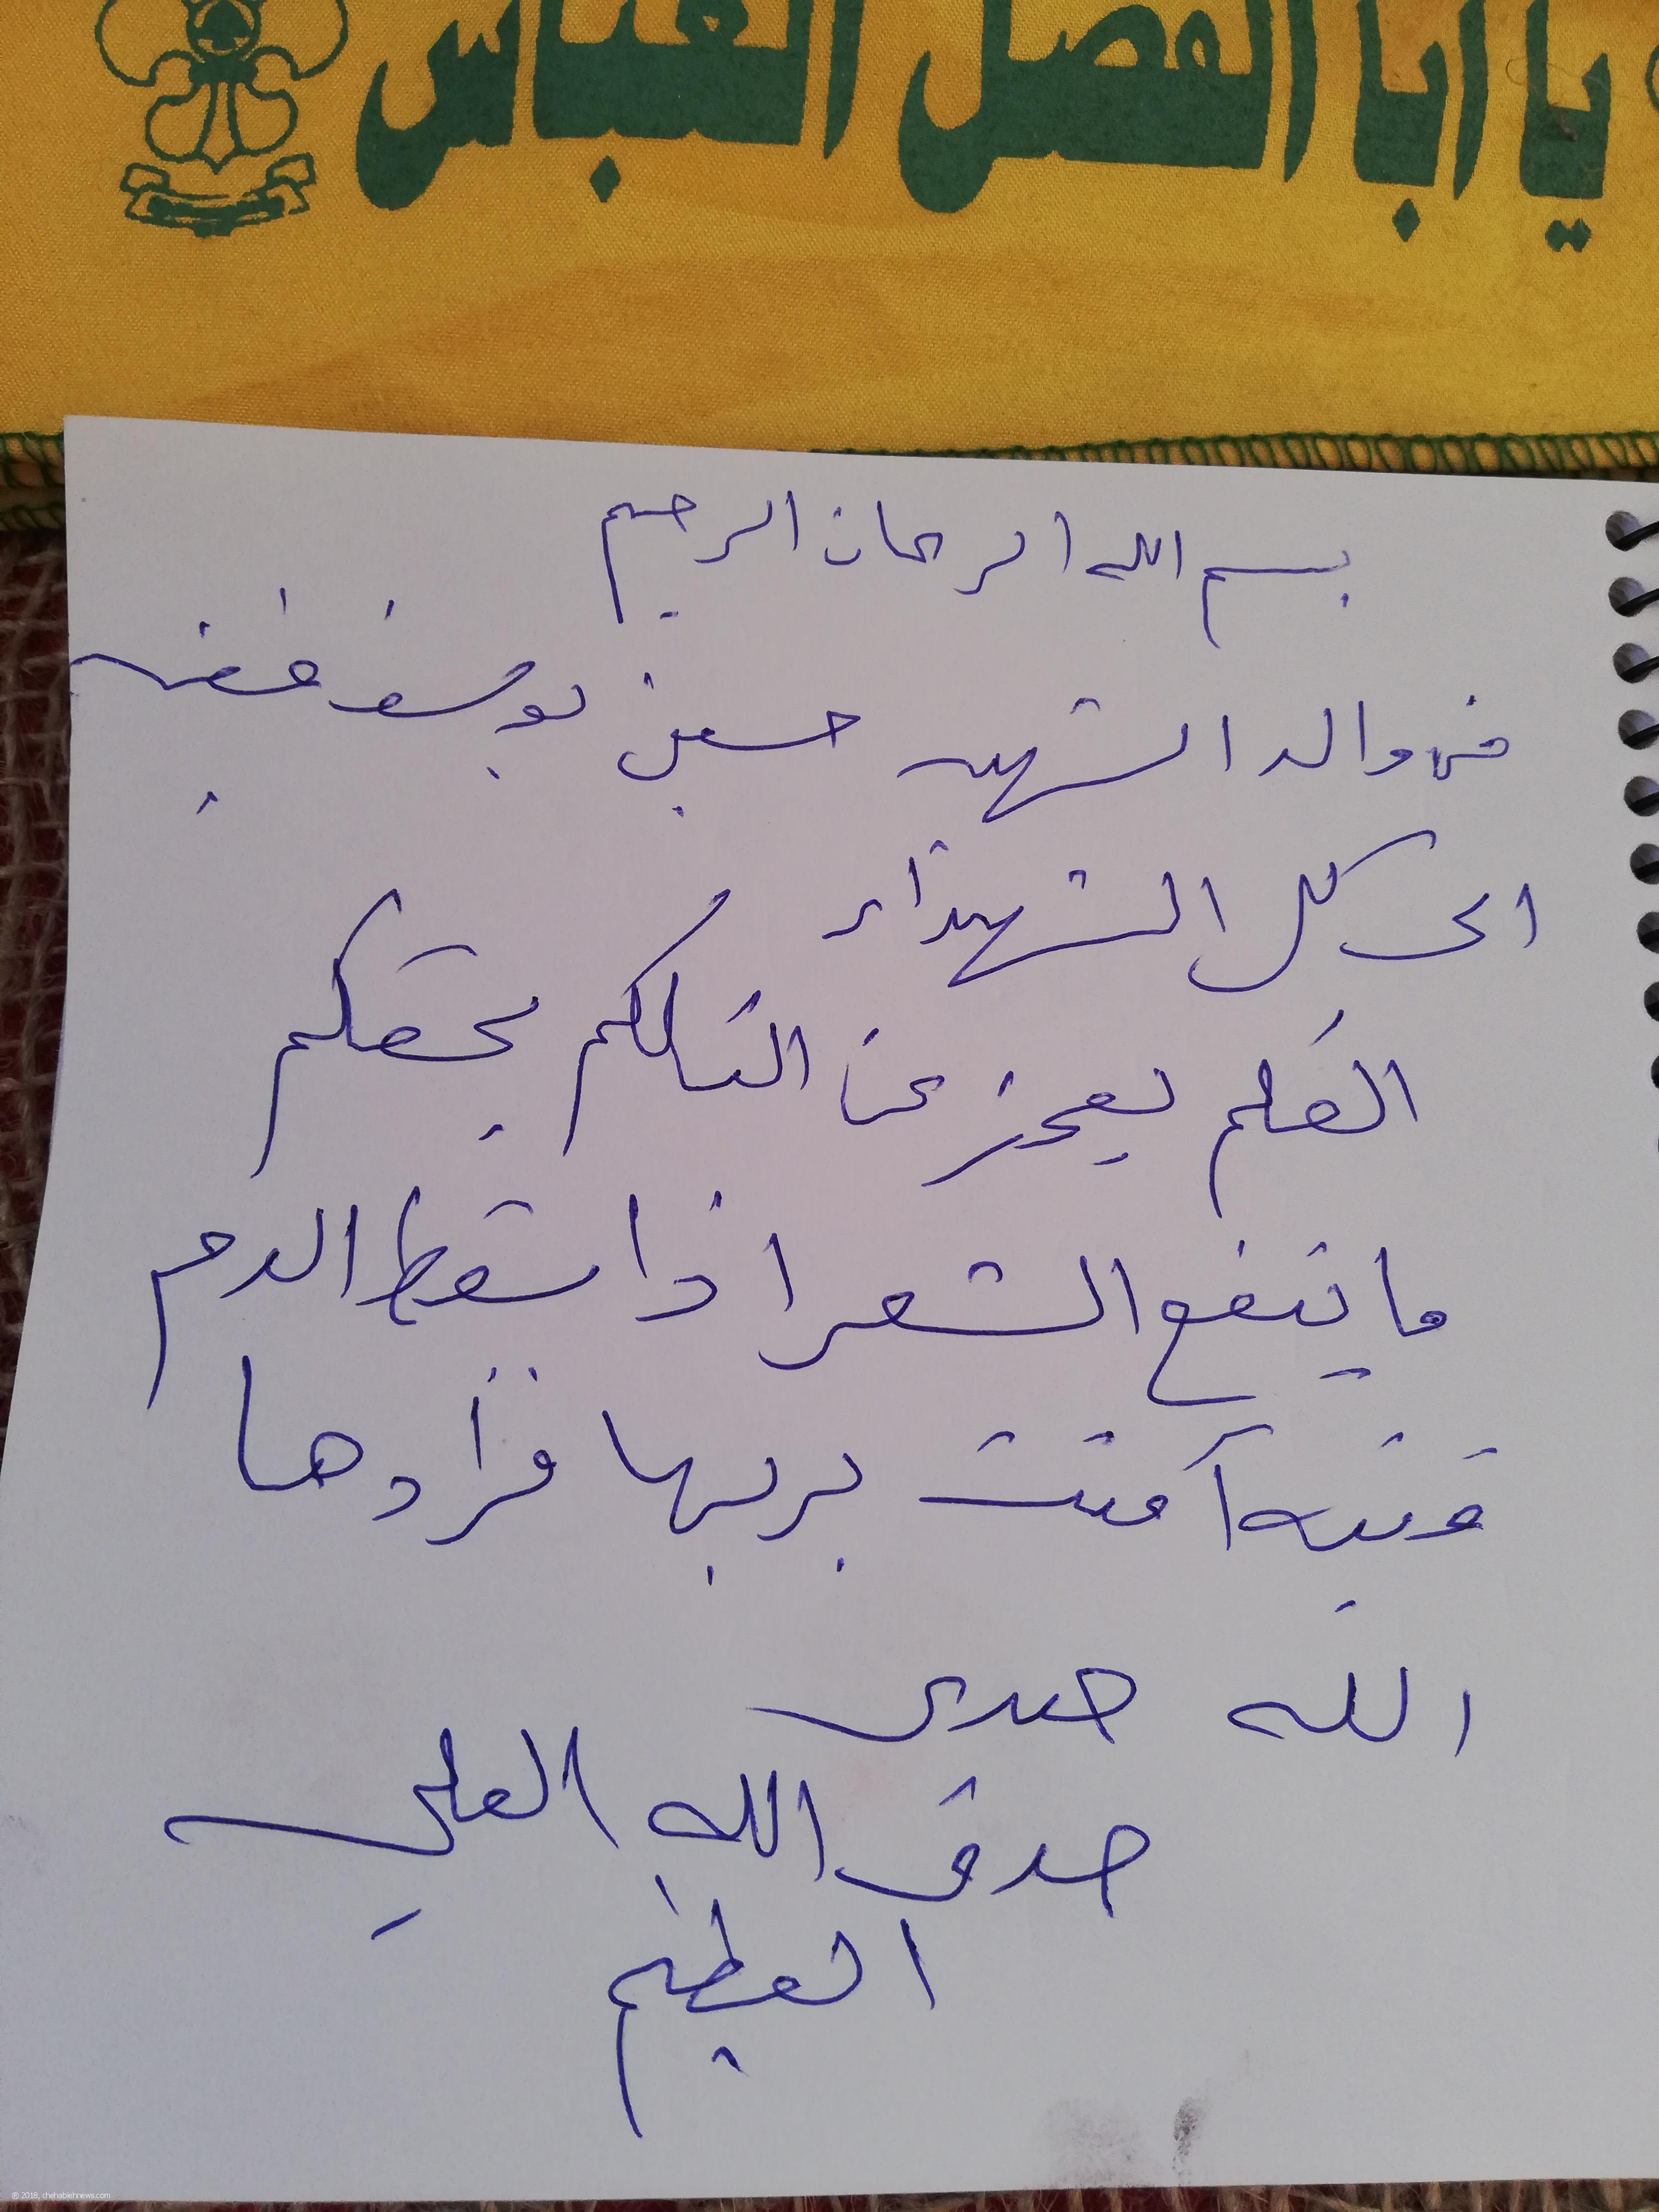 يا أبا الفضل العباس
بسم الله الرحمان الرحيم
من والد الشهيد حسين يوسف
الى كل الشهداء
القلم يعجز عن التكلم بحقكم
ما ينفع الشعر اذا سقط الدم
فتية آمنت بربها فزادها
الله هدى
صدق الله العلي
العظيم
© 2018, chehabiehnews.com